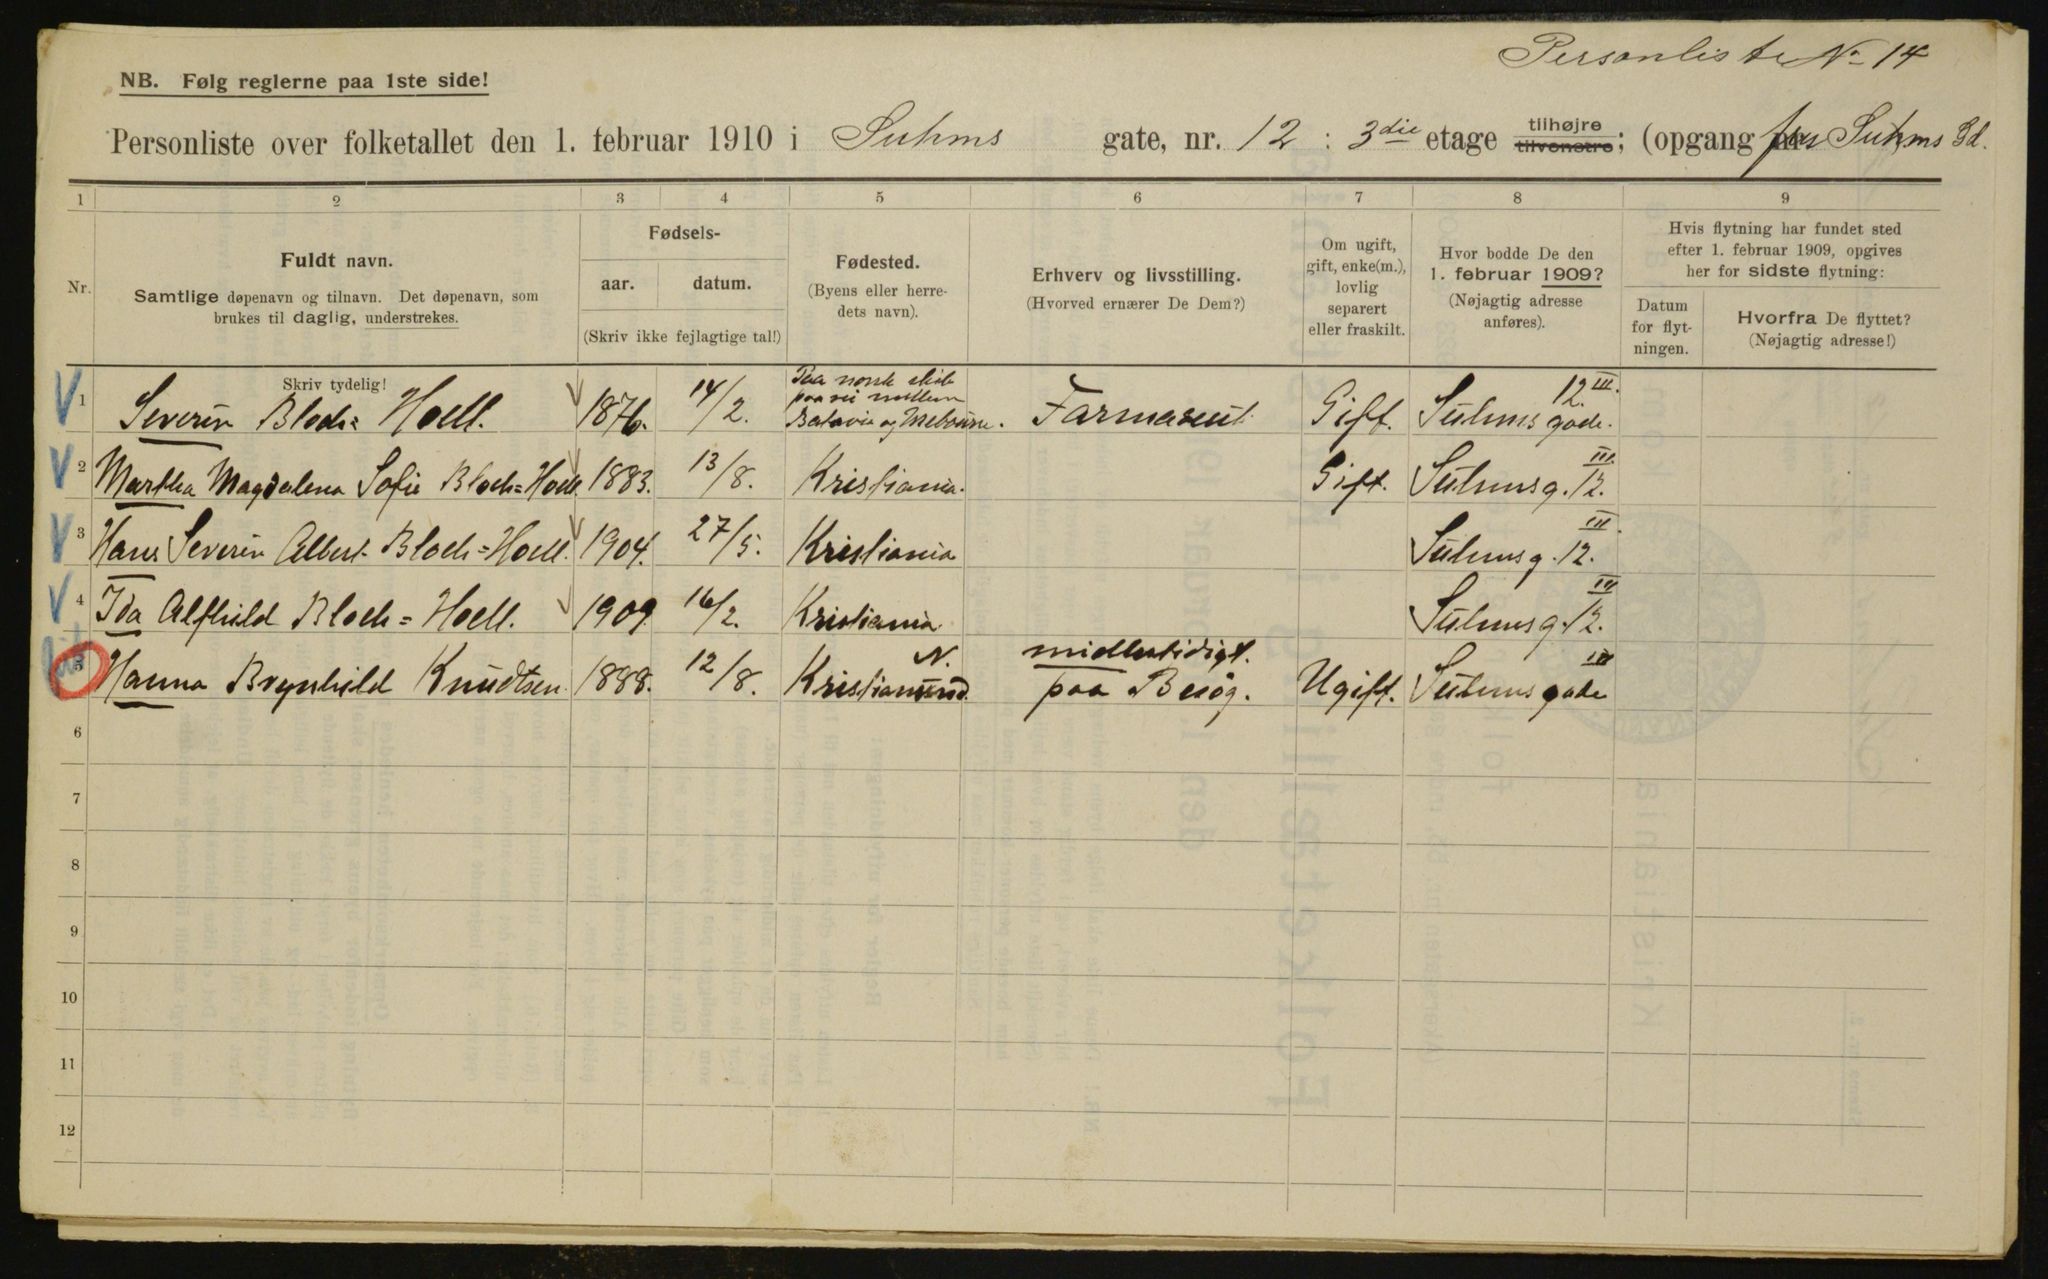 Personliste No 14
NB. Følg reglerne paa 1ste side!
Personliste over folketallet den 1. februar 1910 i Suhms gate, nr. 12 : 3die etage tilhøjre tilvenstre; (opgang fra Suhms Gd.
1 2 3 4 5 6 7 8 9
Nr.
Fuldt navn.
Samtlige døpenavn og tilnavn. Det døpenavn, som
brukes til daglig, understrekes.
Skriv tydelig!
Fødsels-
aar. datum.
(Skriv ikke fejlagtige tal!)
Fødested.
(Byens eller herre-
dets navn).
Erhverv og livsstilling.
(Hvorved ernærer De Dem?)
Om ugift,
gift, enke(m.),
lovlig
separert
eller fraskilt.
Hvor bodde De den
1. februar 1909?
(Nøjagtig adresse
anføres).
Hvis flytning har fundet sted
efter 1. februar 1909, opgives
her for sidste flytning:
Datum
for flyt-
ningen.
Hvorfra De flyttet?
(Nøjagtig adresse!)
1 Severin Bloch=Hoell. 1876. 14/2. Paa norsk skib paa vei mellem Batavia og Melbourne. Farmaceut Gift. Suhms gade. 12 III.
2 Martha Magdalena Sofie Bloch=Hoell. 1883. 13/8. Kristiania. Gift. Suhmsg. 12. III.
3 Hans Severin Albert Bloch=Hoell. 1904. 27/5. Kristiania Suhmsg. 12. III.
4 Ida Alfhild Bloch=Hoell. 1909. 16/2. Kristiania. Suhmsg. 12. III
5 Hanna Brynhild Knudtsen. 1888. 12/8. Kristiansund N. midlertidigt. paa Besøg. Ugift. Suhms gade III
6
7
8
9
10
11
12